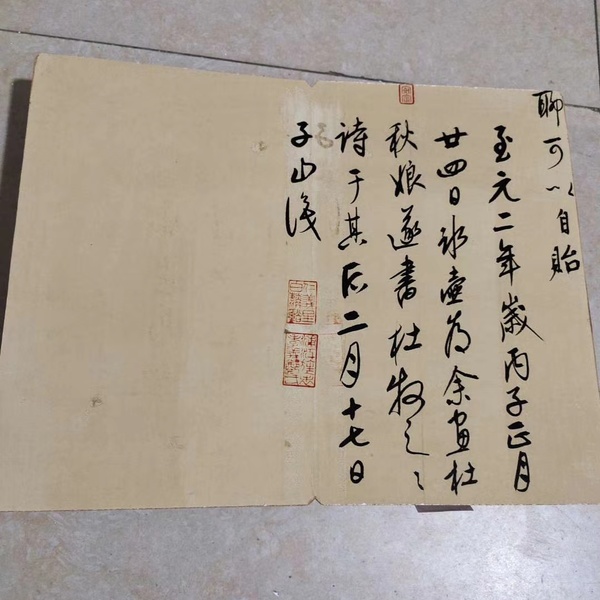 聊可以自貽
至元二年歲丙子正月
廿四日冰壺為余畫杜
秋娘遂書杜牧之之
詩于其后二月十七日
子山識